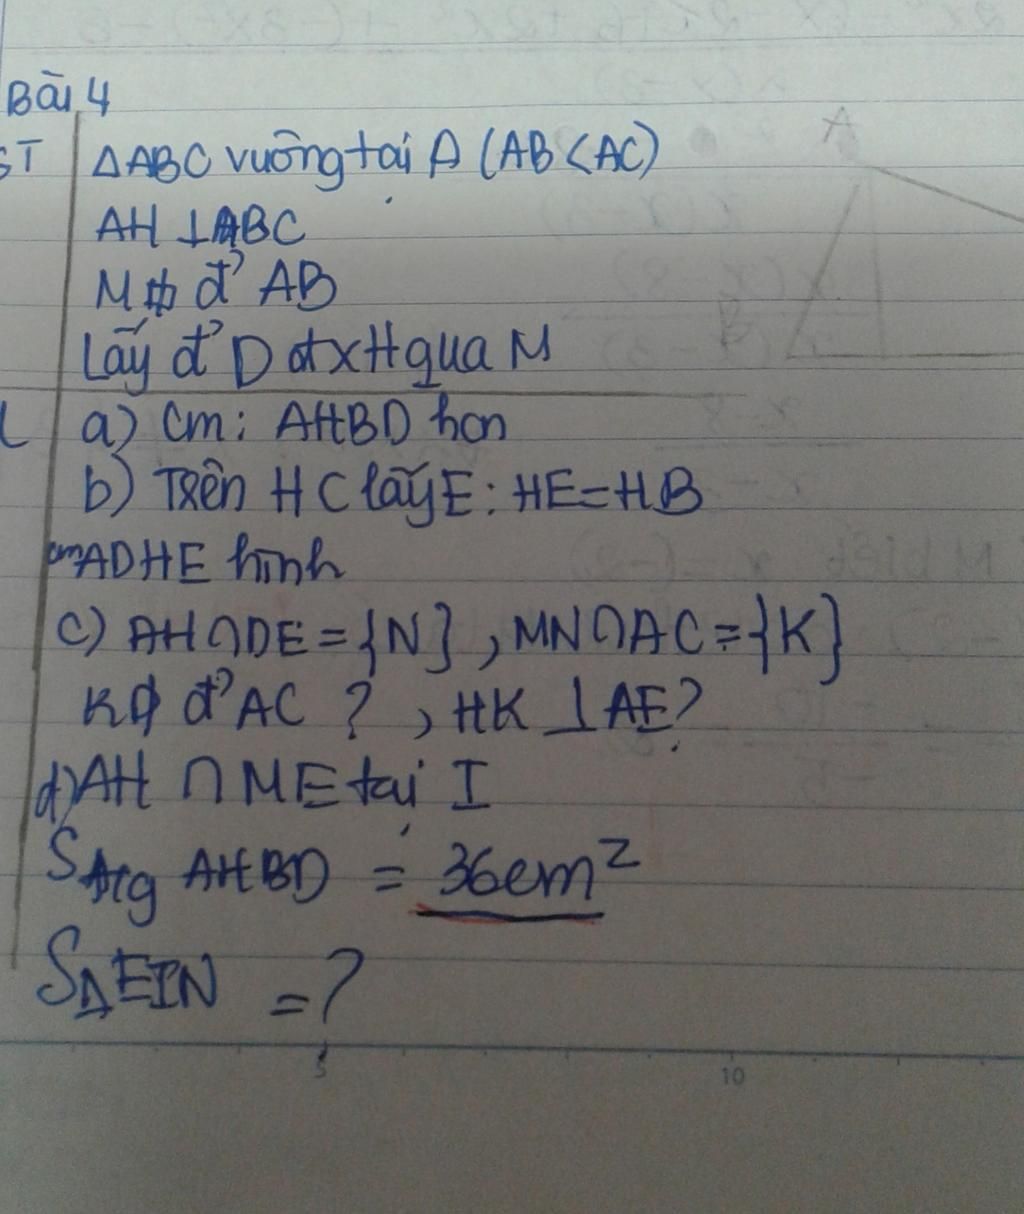 Bài 4
GT ΔABC vuông tại A (AB<AC)
AH ⊥ BC
M tđ đ' AB
Lấy đ' D đx H qua M
L a) cm: AHBD hcn
b) Trên HC lấy E: HE=HB
cm ADHE hình
c) AH∩DE={N}, MN∩AC={K}
K tđ đ' AC ?, HK ⊥ AE?
d) AH ∩ ME tại I
S AHBD = 36cm²
SΔEIN = ?
A
B
5
10